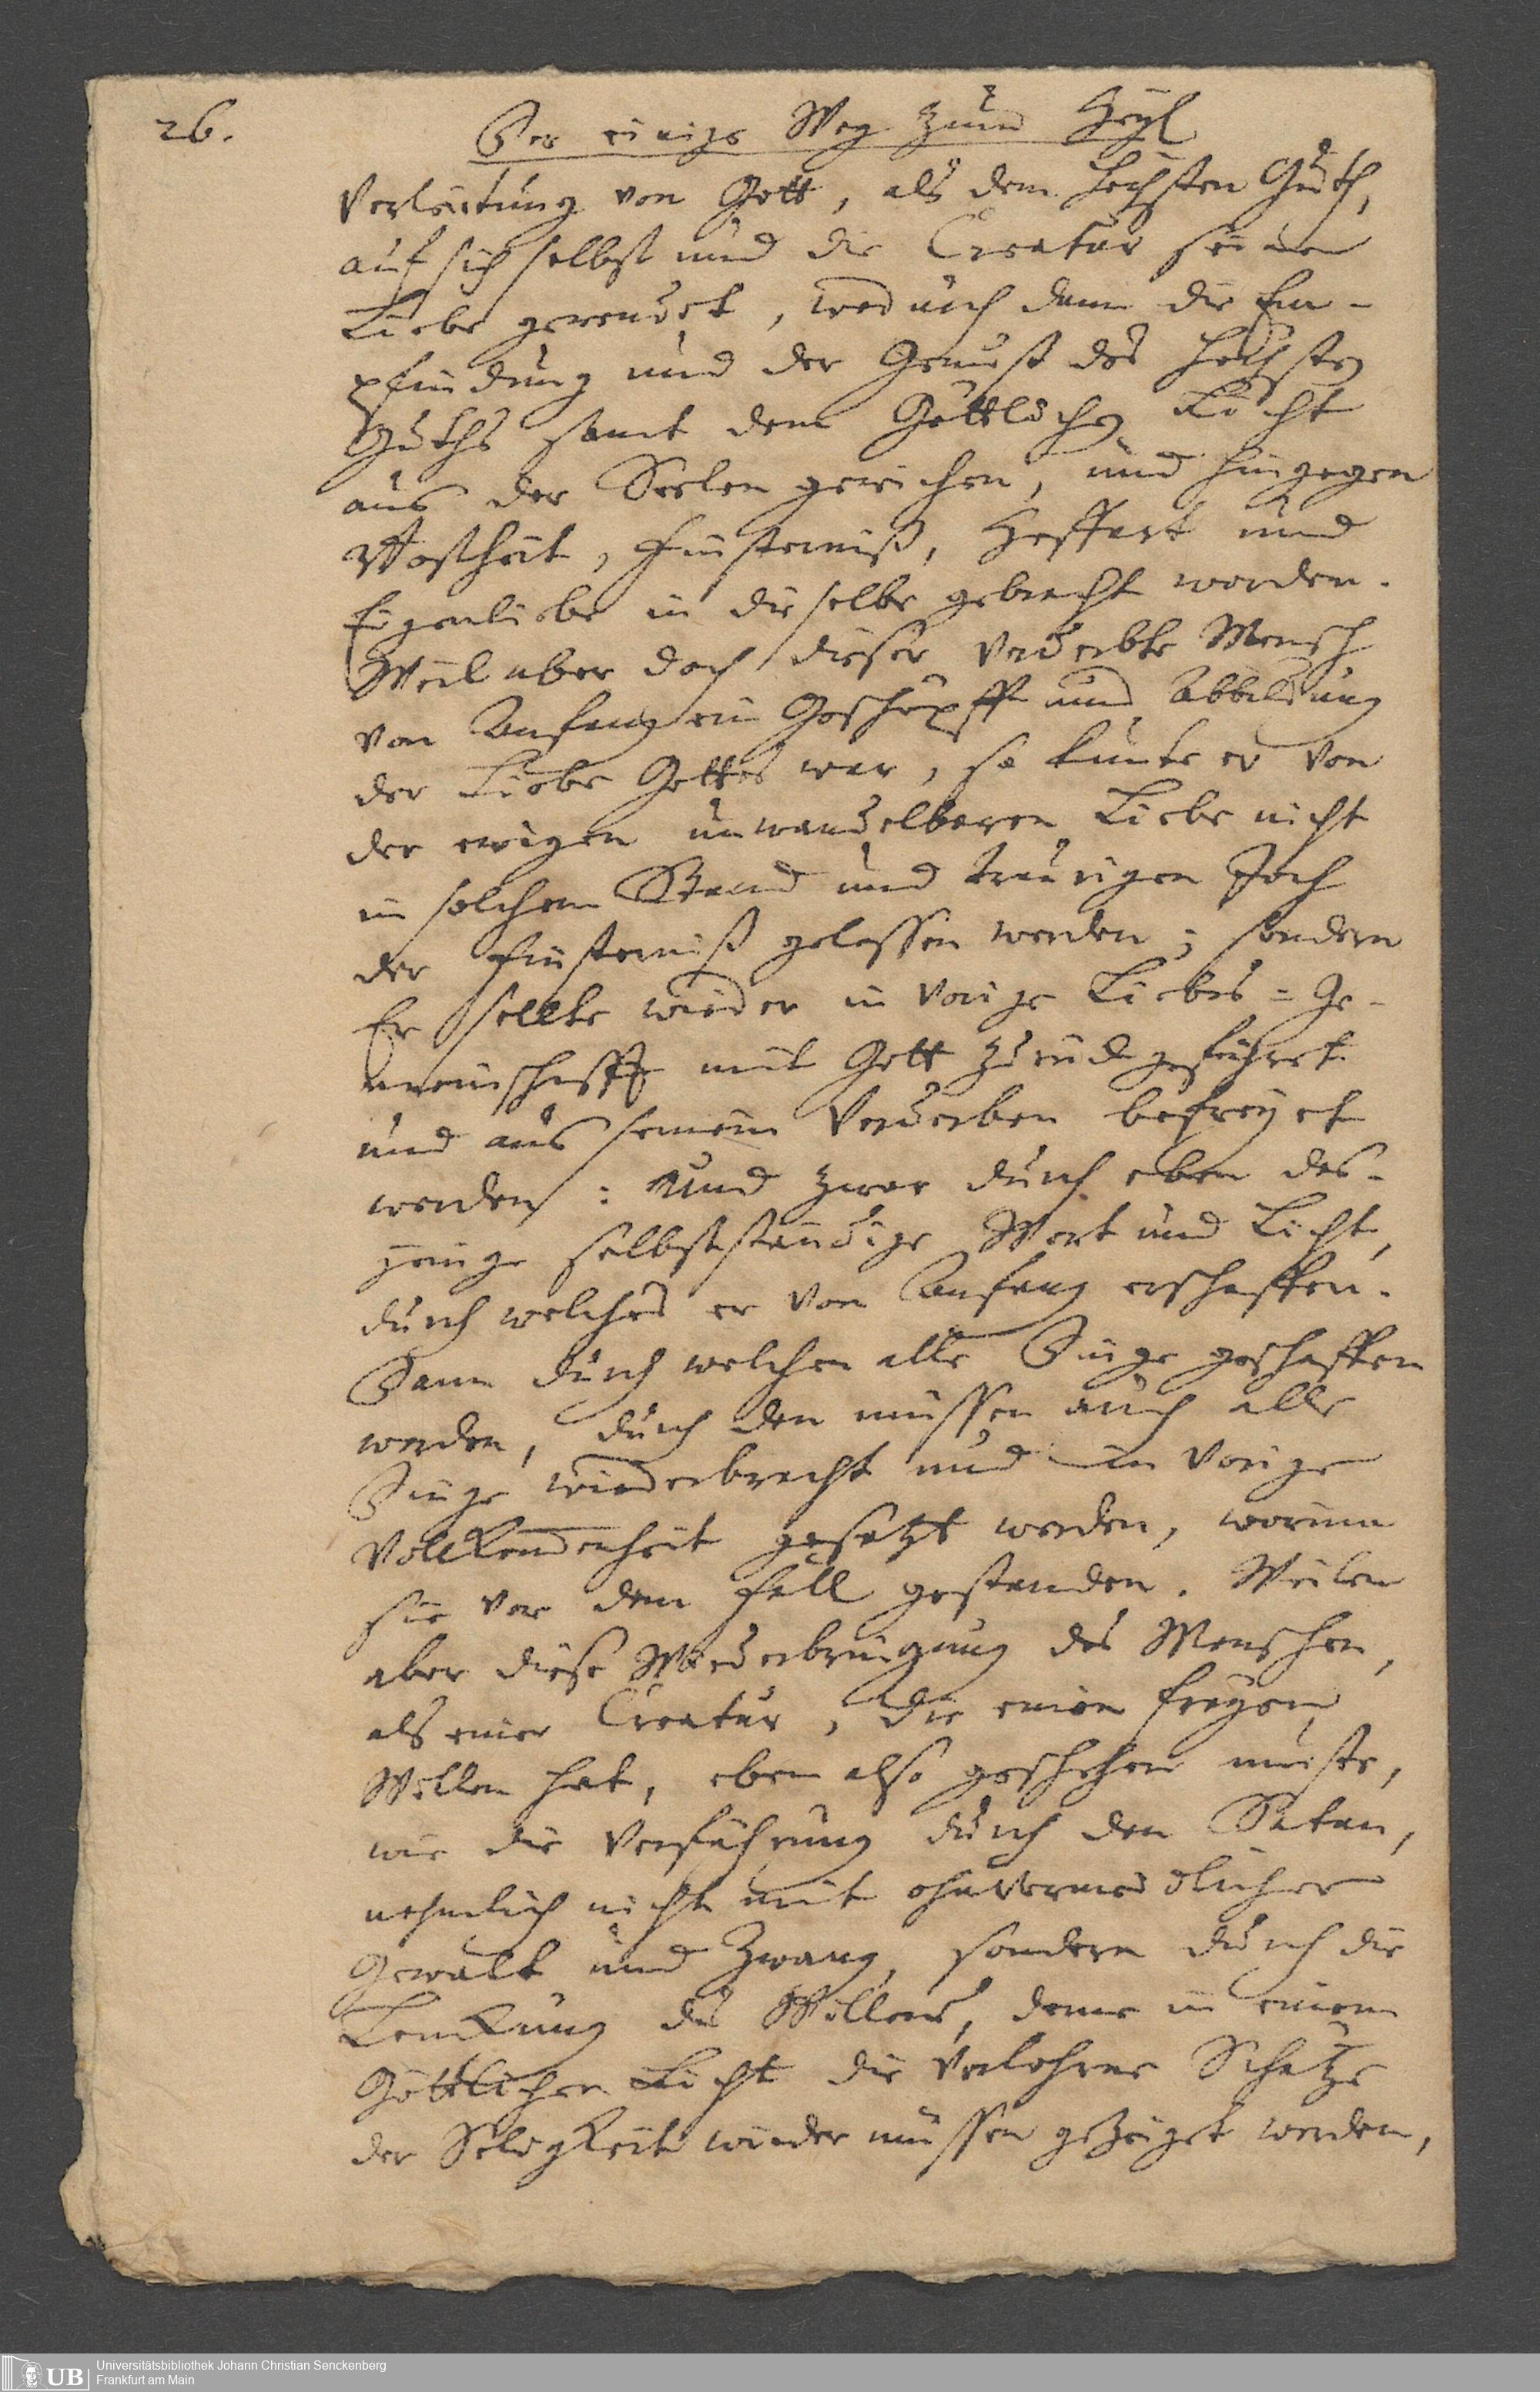 26.
Der einige Weg zum Heyl
Verleitung von Gott, als dem höchsten Guth,
auf sich selbst und die Creatur seine
Liebe gewendet, wodurch dann die Em-
pfindung und der Genuß des höchsten
Guths samt dem Göttlichen Licht
aus der Seelen gewichen, und hingegen
Boßheit, Finsterniß, Hoffart und
Eigenliebe in dieselbe gebracht worden.
Weil aber doch dieser verderbte Mensch
von Anfang ein Geschöpff und Abbildung
der Liebe Gottes war, so kunte er von
der ewigen unwandelbaren Liebe nicht
in solchem Stand und traurigen Joch
der Finsterniß gelassen werden; sondern
Er sollte wieder in vorige Liebes-Ge-
meinschafft mit Gott zurück geführet
und aus seinem Verderben befreyet
werden: Und zwar durch eben das-
jenige selbstständige Wort und Licht,
durch welches er von Anfang erschaffen.
Dann durch welchen alle Dinge geschaffen
worden, durch den müssen auch alle
Dinge wiederbracht und in vorige
Vollkommenheit gesetzt werden, worinn
sie vor dem Fall gestanden. Weilen
aber diese Wiederbringung des Menschen,
als einer Creatur, die einen freyen
Willen hat, eben also geschehen muste,
wie die Verführung durch den Satan,
nehmlich nicht mit ohnvermeidlicher
Gewalt und Zwang, sondern durch die
Lenckung des Willens, deme in einem
Göttlichen Licht die verlohrne Schätze
der Seligkeit wieder müssen gezeiget werden,
UB
Universitätsbibliothek Johann Christian Senckenberg
Frankfurt am Main